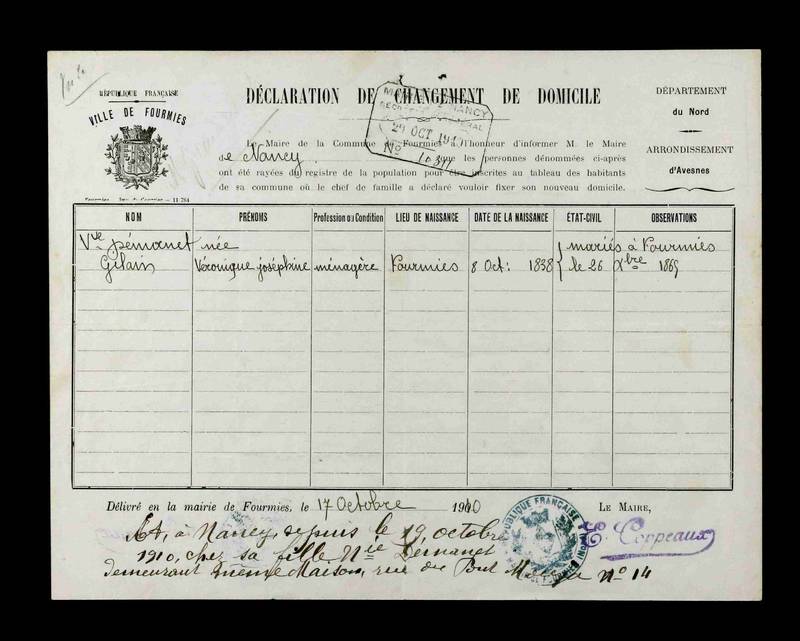 RÉPUBLIQUE FRANÇAISE
VILLE DE FOURMIES
DÉCLARATION DE CHANGEMENT DE DOMICILE
DÉPARTEMENT
du Nord
ARRONDISSEMENT
d'Avesnes
NANCY
29 OCT 1910
No
Le Maire de la Commune de Fourmies a l'honneur d'informer M. le Maire
de Nancy que les personnes dénommées ci-après
ont été rayées du registre de la population pour être inscrites au tableau des habitants
de sa commune où le chef de famille a déclaré vouloir fixer son nouveau domicile.
NOM PRÉNOMS Profession ou Condition LIEU DE NAISSANCE DATE DE LA NAISSANCE ÉTAT-CIVIL OBSERVATIONS
Vve pémanet née mariés à Fourmies
Gilain Véronique joséphine ménagère Fourmies 8 Oct: 1838 le 26 Xbre 1865
Délivré en la mairie de Fourmies, le 17 Octobre 1910 LE MAIRE,
RÉPUBLIQUE FRANÇAISE
C. Coppeaux
Est, à Nancy, depuis le 19 octobre
1910, chez sa fille
demeurant même Maison, rue du Pont No 14